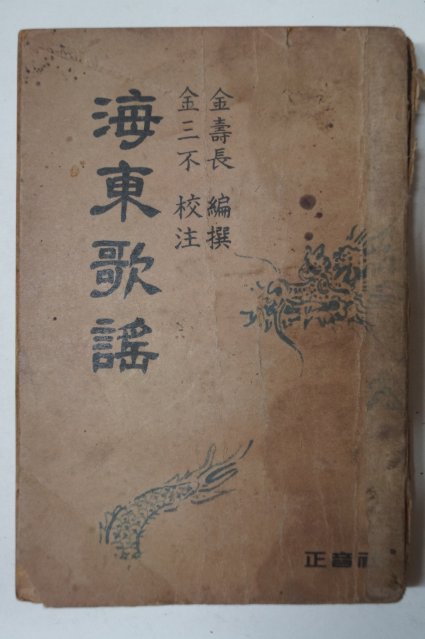 金壽長 編撰
金三不 校注
海東歌謠
正音社